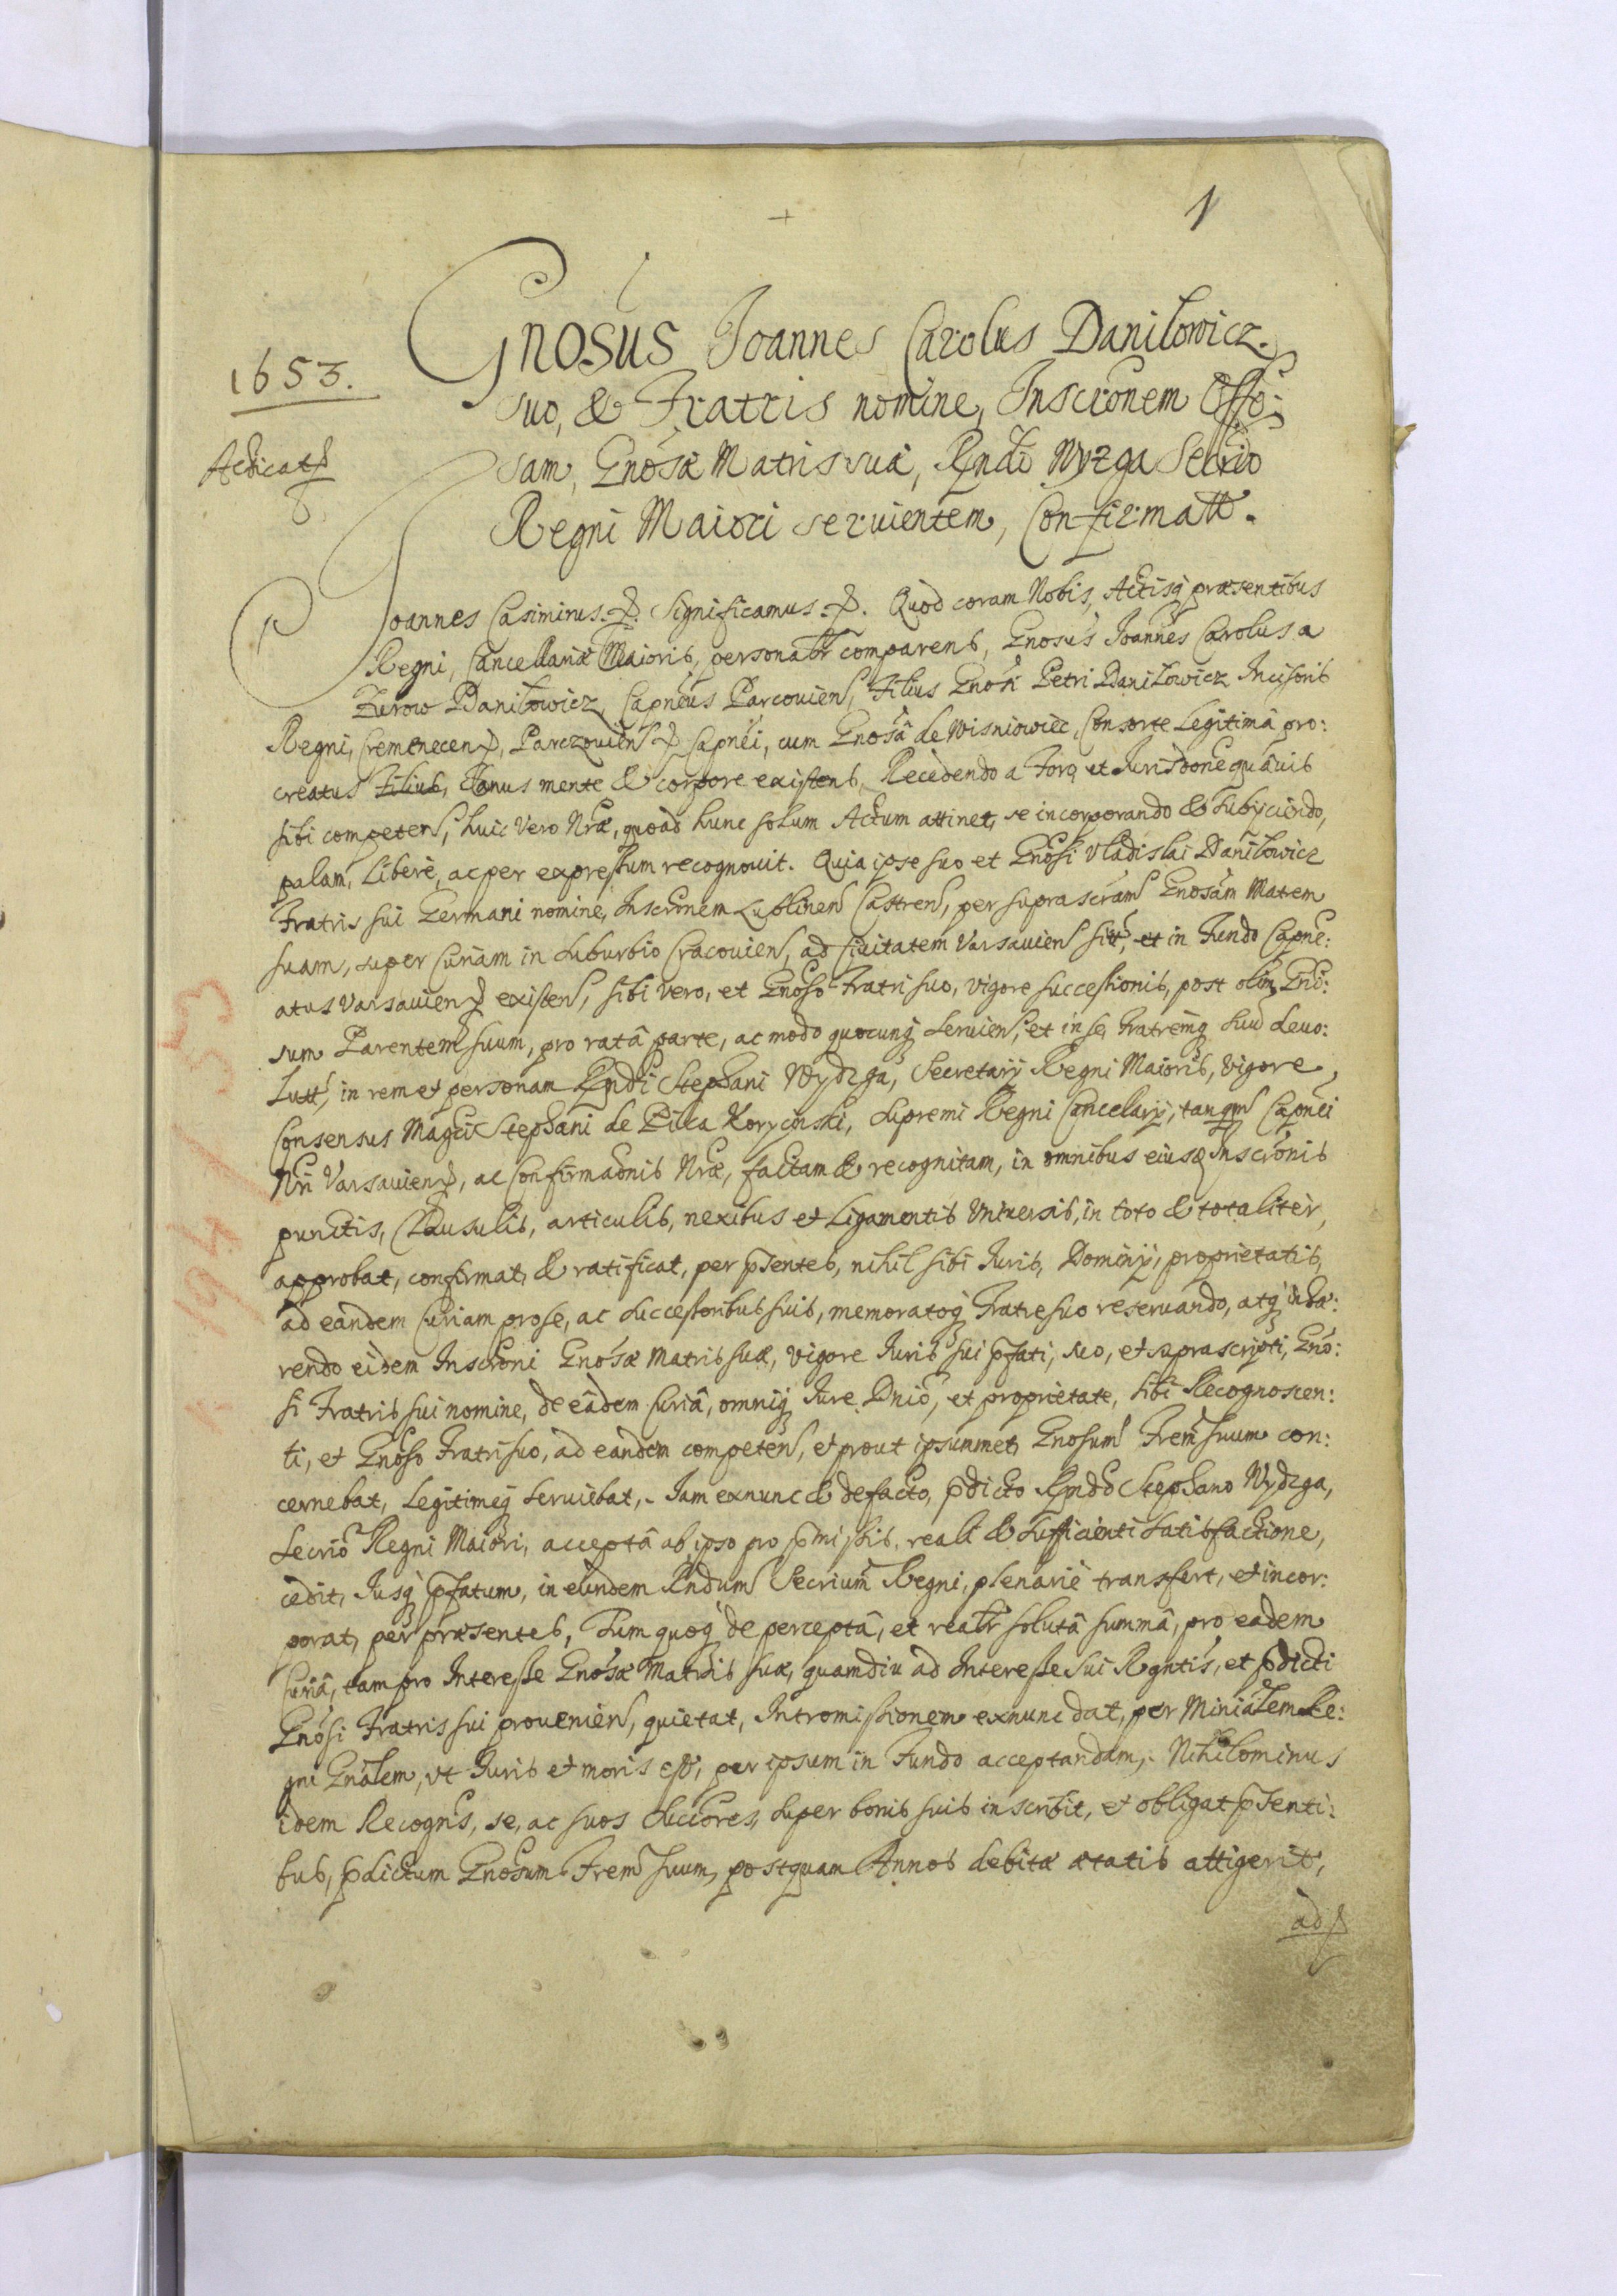 1
1653.
Gnosus Joannes Carolus Danilowicz.
suo, & Fratris nomine, Inscronem
sam, Gnosæ Matris suæ, Rndo Wyzga Secrio
Regni Maiori seruientem, Confirmatt.
Joannes Casimirus. Significamus. Quod coram Nobis, Actisq præsentibus
Regni, Cancellariæ Maioris, personaltr comparens, Gnosus Joannes Carolus a
Zurow Danilowicz, Capneus Parcouiens, Filius Gnosi Petri Danilowicz Incisoris
Regni, Cremenecen, Parczouiens Capnei, cum Gnosâ de Wisniowiec, Consorte Legitimâ pro:
creatus Filius, Sanus mente & corpore existens, Recedendo a Foro, et Jurisdone quâuis
sibi competens, huic vero Nræ, quoad hunc solum Actum attinet, se incorporando & subijciendo,
palam, Libere, ac per expressum recognouit. Quia ipse suo et Gnosi Vladislai Danilowicz
Fratris sui Germani nomine, Inscronem Lublinen Castren, per suprascram Gnosam Matrem
suam, super Curiam in suburbio Cracouien, ad Ciuitatem Varsauien sitt, et in Fundo Capne:
atus Varsauien existen, sibi vero, et Gnoso Fratri suo, vigore successionis, post olim Gno:
sum Parentem suum, pro ratâ parte, ac modo quocunq seruien, et in se, Fratremq suū deuo:
lutt, in rem et personam Rndi Stephani Wydzga, Secretarij Regni Maioris, vigore
Consensus Magci Stephani de Pilca Koryciński, Supremi Regni Cancelarij, tanqm Capnei
Nri Varsauien, ac Confirmaonis Nræ, factam & recognitam, in omnibus eiusq Inscronis
punctis, Clausulis, articulis, nexibus et Ligamentis Vniuersis, in toto & totaliter,
approbat, confirmat, & ratificat, per psentes, nihil sibi Juris, Dominij, proprietatis,
ad eandem Curiam pro se, ac successoribus suis, memoratoq Fratre suo reseruando, atq inhæ:
rendo eidem Inscroni Gnosæ Matris suæ, vigore Juris sui pfati, suo, et suprascripti, Gno:
si Fratris sui nomine, de eâdem Curiâ, omniq Jure Dnio, et proprietate, sibi Recognoscen:
ti, et Gnoso Fratri suo, ad eandem competen, et prout ipsummet Gnosum Frem suum con:
cernebat, Legitimeq seruiebat, Iam exnunc & defacto, pdicto Rndo Stephano Wydzga,
Secrio Regni Maiori, acceptâ ab ipso pro pmissis, reali & sufficienti satisfactione,
cedit, Jusq pfatum, in eundem Rndum Secrium Regni, plenarie transfert, et incor:
porat, per præsentes, Eum quoq de perceptâ, et realtr solutâ summâ, pro eadem
Curiâ, tam pro Interesse Gnosæ Matris suæ, quamdiu ad Interesse sui Rgntis, et pdicti
Gnosi Fratris sui prouenien, quietat, Intromissionem exnunc dat, per Minialem Re:
gni Gnalem, vt Juris et moris est, per ipsum in Fundo acceptandam, Nihilominus
idem Recogns, se, ac suos succores, super bonis suis inscribit, et obligat psenti:
bus, pdictum Gnosum Frem suum, postquam Annos debitæ ætatis attigerit,
ad